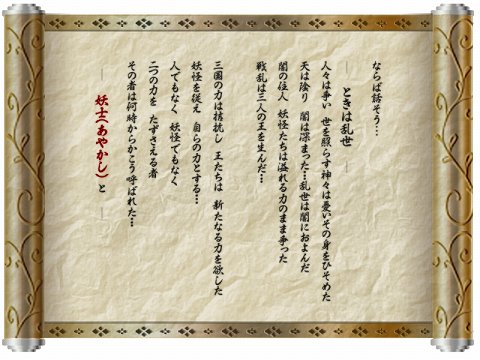 ならば話そう…
― ときは乱世 ―
人々は争い 世を照らす神々は憂いその身をひそめた
天は陰り 闇は深まった…乱世は闇におよんだ
闇の住人 妖怪たちは溢れる力のまま争った
戦乱は三人の王を生んだ…
三国の力は拮抗し 王たちは 新たなる力を欲した
妖怪を従え 自らの力とする…
人でもなく 妖怪でもなく
二つの力を たずさえる者
その者は何時からかこう呼ばれた…
― 妖士(あやかし)と ―